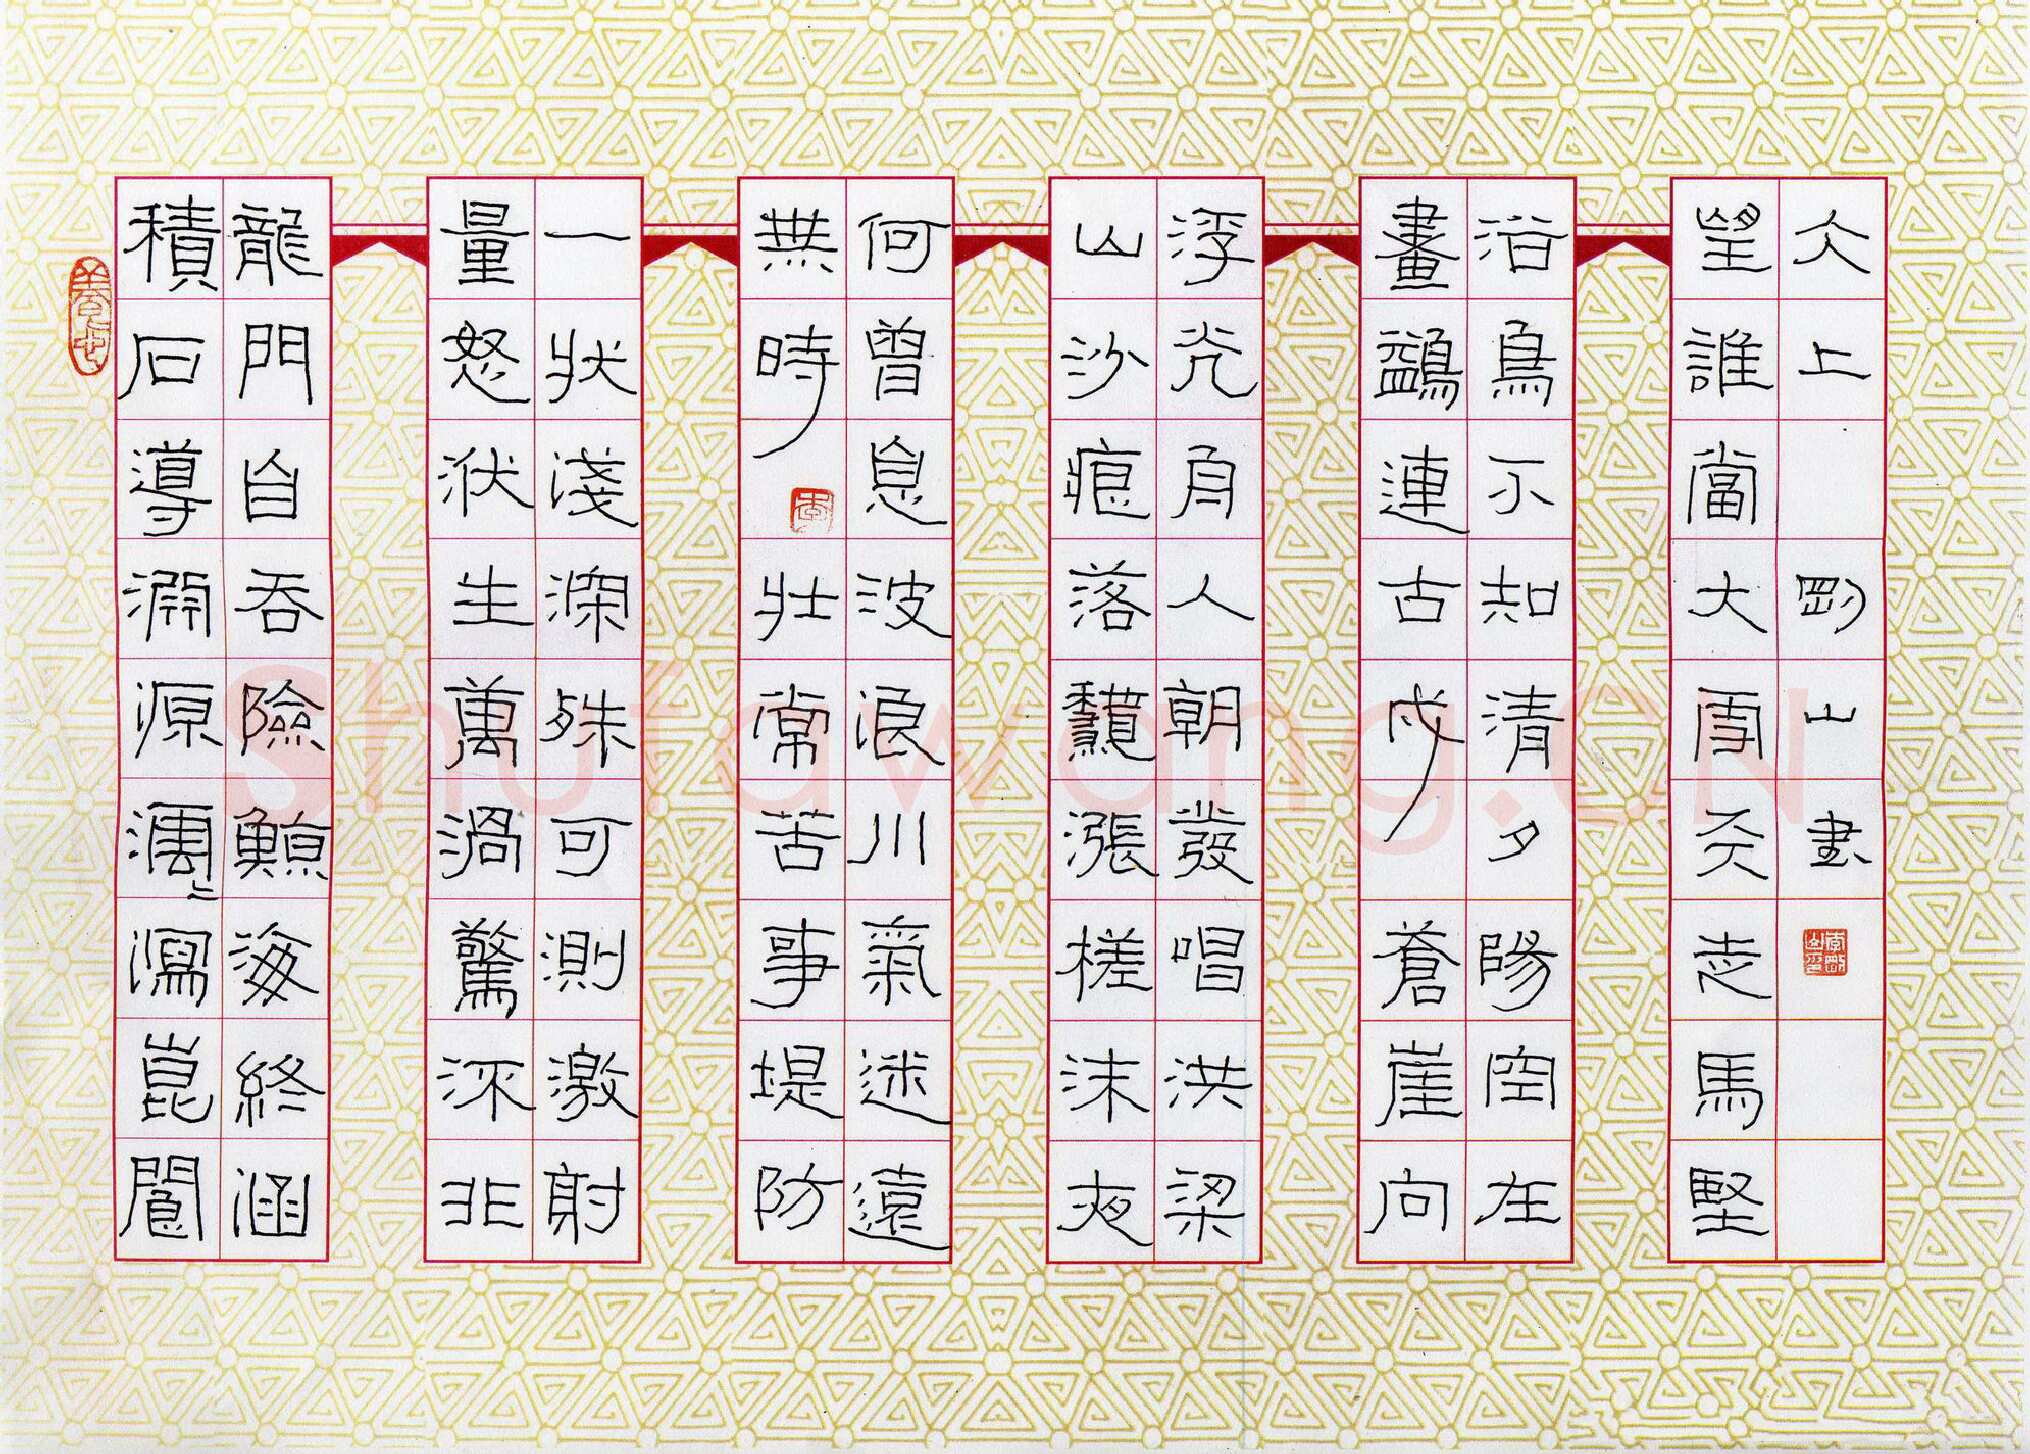 積石導淵源澐〻瀉崑閬
龍門自吞險鯨海終涵
量怒洑生萬渦驚流非
一狀淺深殊可測激射
無時壯常苦事堤防
何曾息波浪川氣迷遠
山沙痕落龝漲槎沫夜
浮光舟人朝發唱洪梁
畫鷁連古戍蒼崖向
浴鳥不知清夕陽空在
望誰當大雪天走馬堅
仌上 剛山書
shufawang.CN